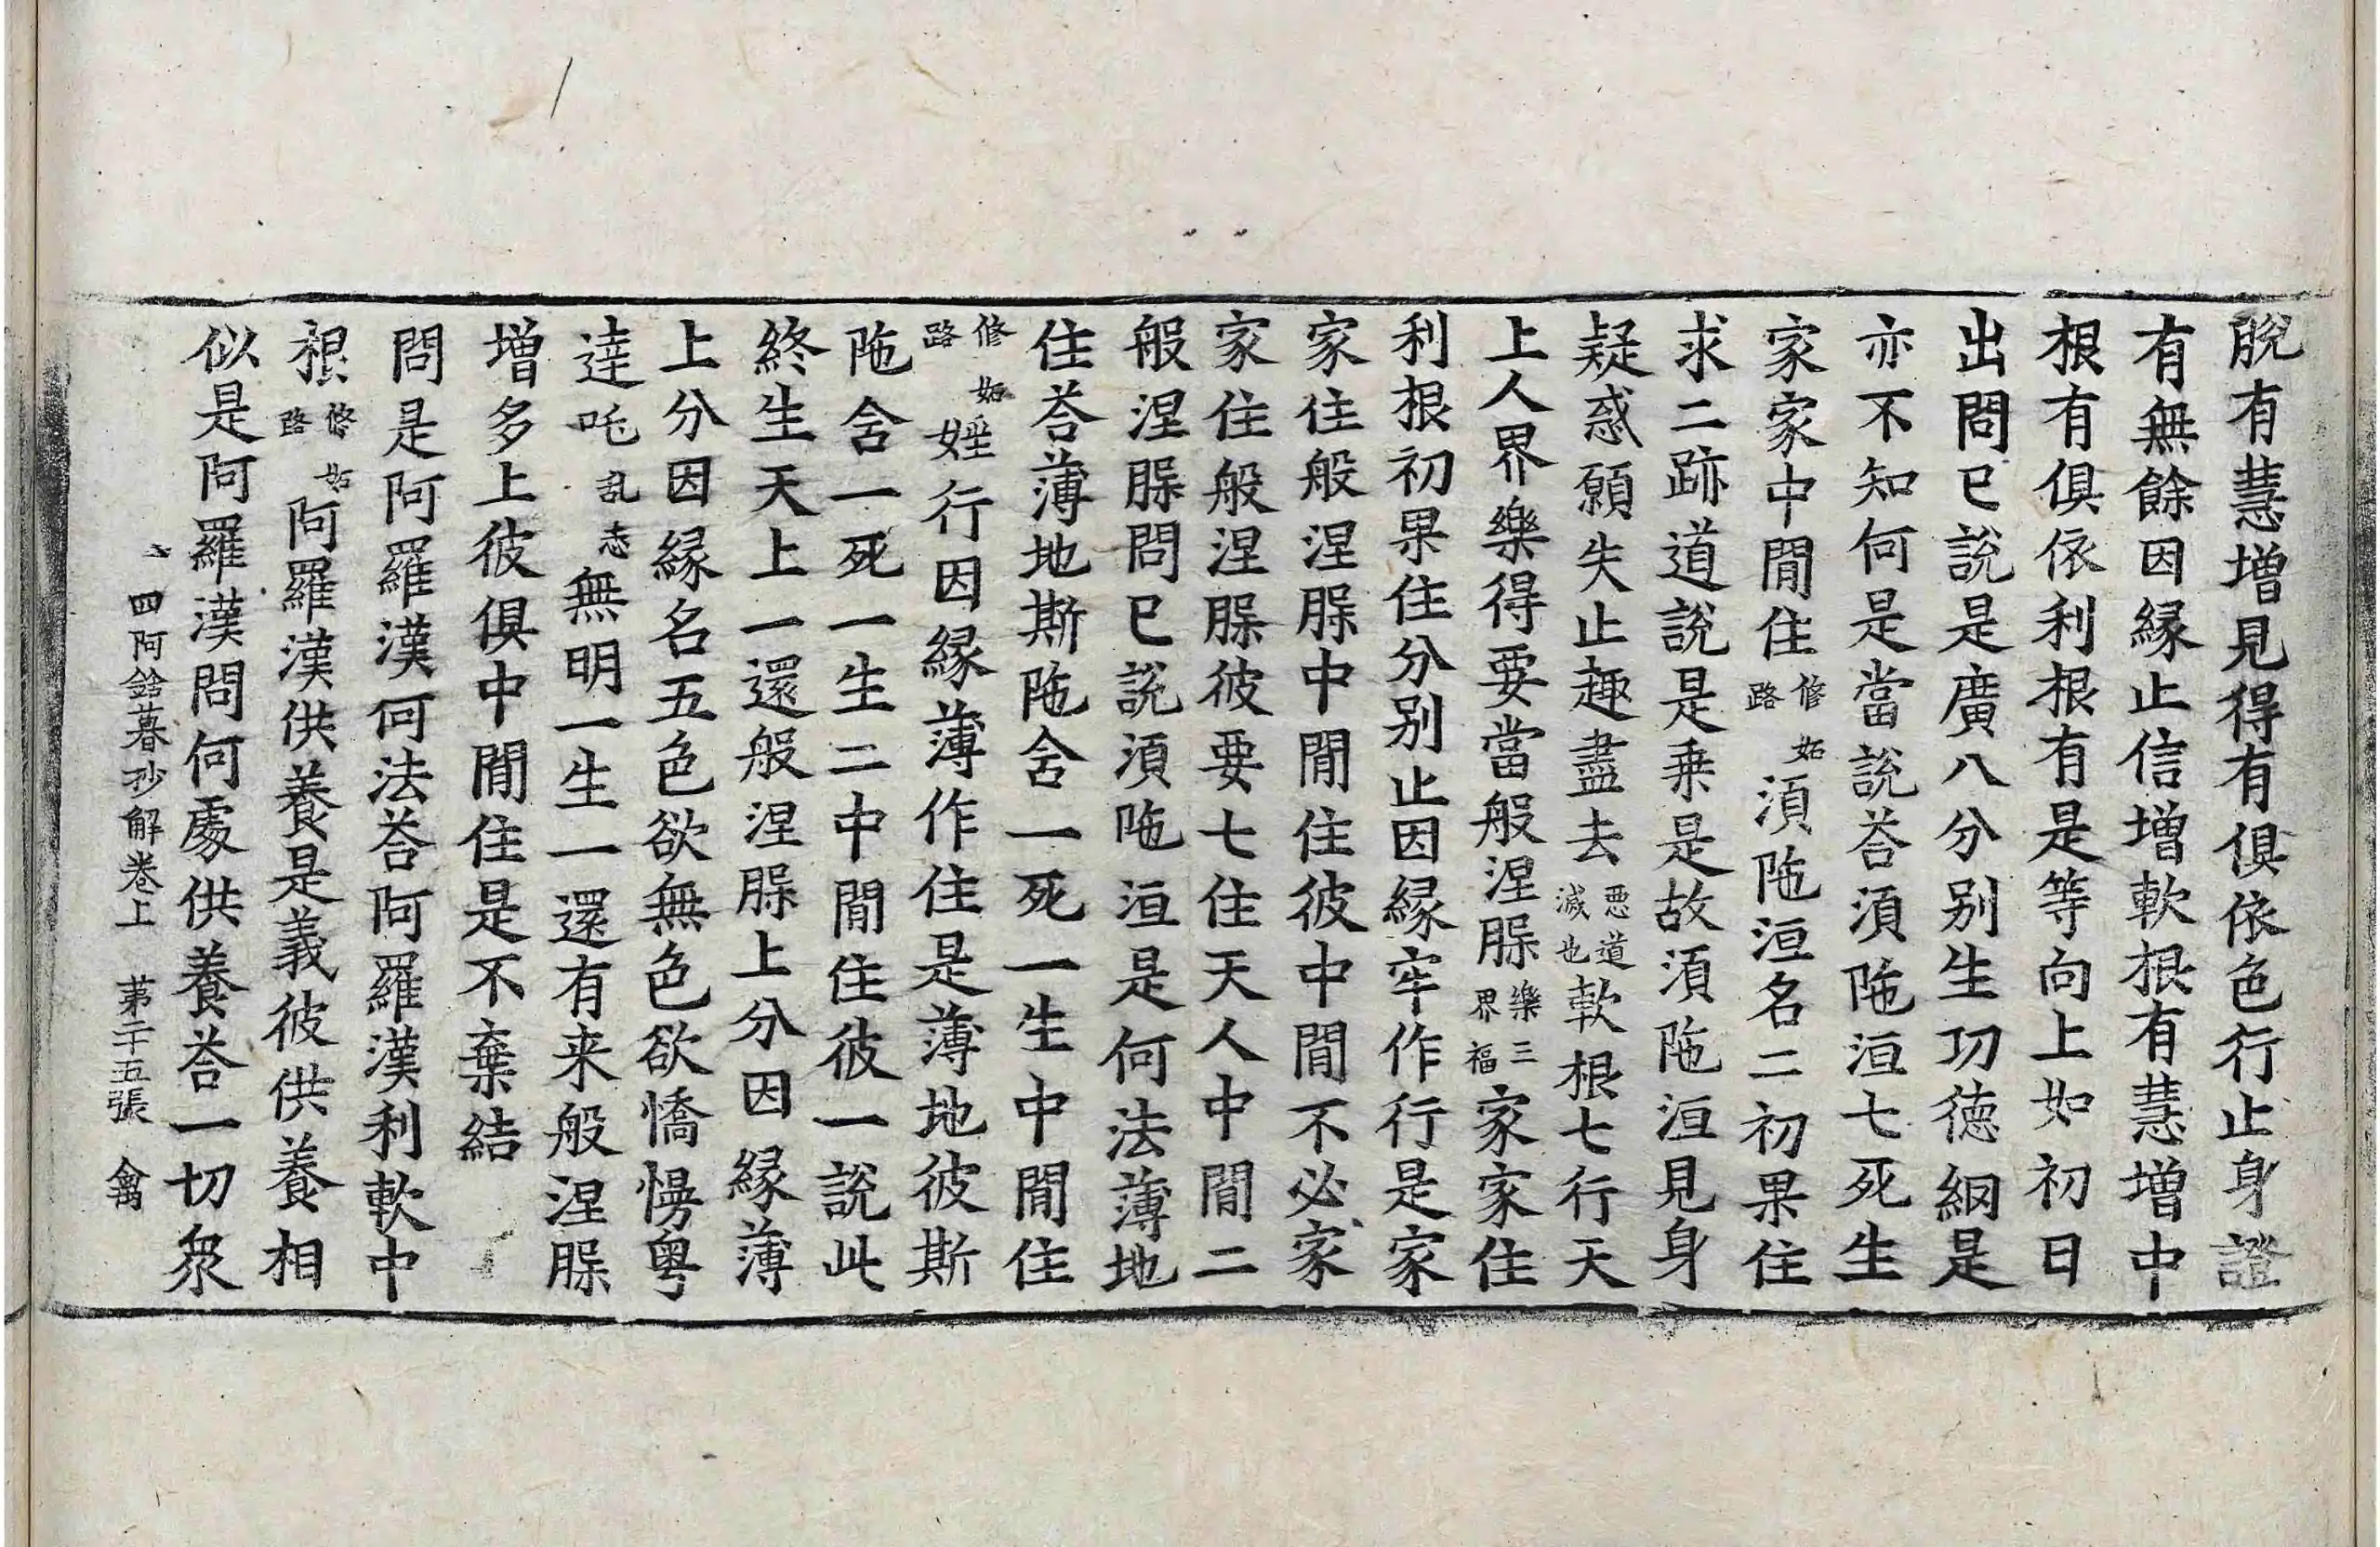 脫有慧增見得有俱依色行止身證
有無餘因縁止信増軟根有慧增中
根有俱依利根有是等向上如初日
出問已說是廣八分別生功德綱是
亦不知何是當說荅湏陁洹七死生
家家中間住修妬路湏陁洹名二初果住
求二跡道說是乗是故湏陁洹見身
疑惑願失止趣盡去惡道滅也軟根七行天
上人界樂得要當般涅𦙃樂三界福家家住
利根初果住分別止因縁牢作行是家
家住般涅𦙃中間住彼中間不必家
家住般涅𦙃彼要七住天人中間二
般涅𦙃問已說湏陁洹是何法薄地
住荅薄地斯陁含一死一生中間住
修妬路婬行因縁薄作住是薄地彼斯
陁含一死一生二中間住彼一說此
終生天上一還般涅𦙃上分因縁薄
上分因縁名五色欲無色欲憍慢粤
達吒乱志無明一生一還有来般涅𦙃
增多上彼俱中間住是不棄結
問是阿羅漢何法荅阿羅漢利軟中
根修妬路阿羅漢供養是義彼供養相
似是阿羅漢問何處供養荅一切衆
四阿鋡暮抄解卷上　苐二十五張　禽